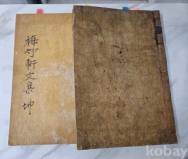 梅竹軒文集 坤
kobay